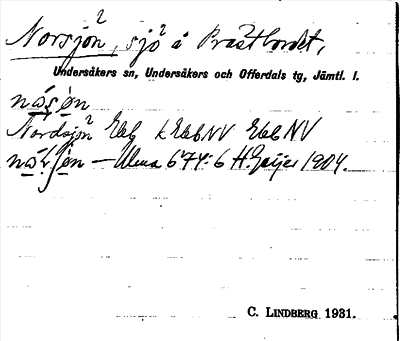 Norsjön, sjö å Prästbordet,
Undersåkers sn, Undersåkers och Offerdals tg, Jämtl. l.
Nordsjön Ebg kEkbNV EkbNV
— Ulma 674:6 H.Geijer 1904.
C. LINDBERG 1931.